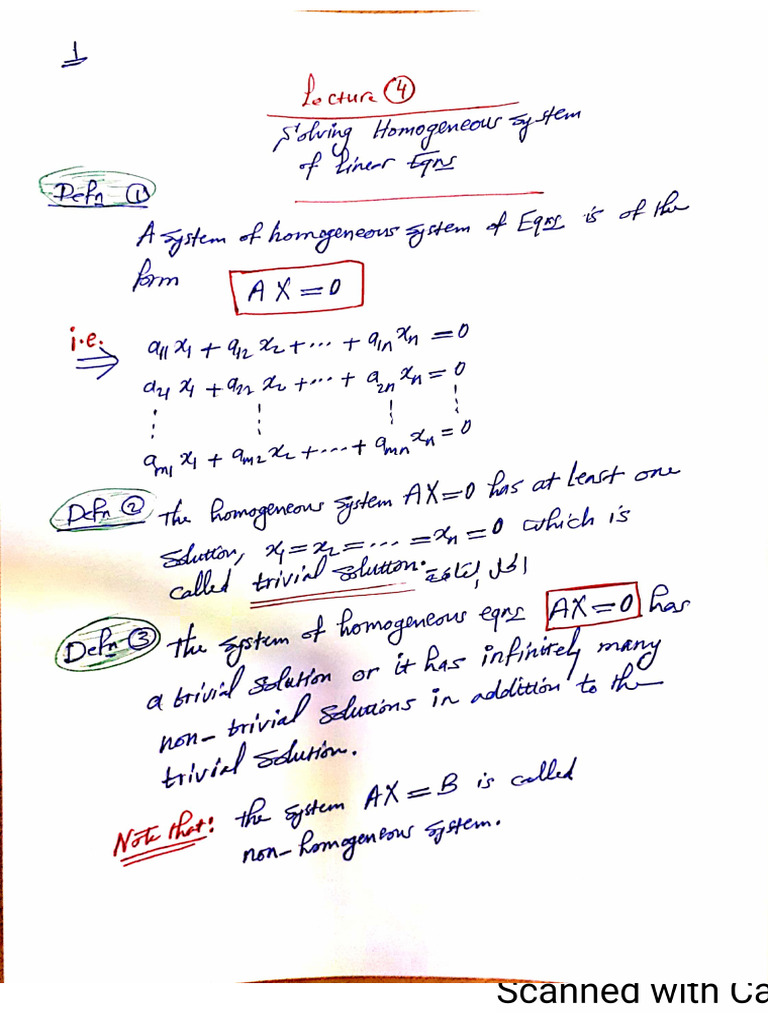 1
Lecture ④
Solving Homogeneous System
of Linear Eqns
Defn ①
A system of homogeneous system of Eqns is of the
form AX=0
i.e. ⇒ a₁₁x₁ + a₁₂x₂ + ... + a₁ₙxₙ = 0
a₂₁x₁ + a₂₂x₂ + ... + a₂ₙxₙ = 0
aₘ₁x₁ + aₘ₂x₂ + ... + aₘₙxₙ = 0
Defn ② The homogeneous system AX=0 has at least one
solution, x₁ = x₂ = ... = xₙ = 0 which is
called trivial solution. الحل التافه
Defn ③ The system of homogeneous eqns AX=0 has
a trivial solution or it has infinitely many
non-trivial solutions in addition to the
trivial solution.
Note that: the system AX=B is called
non-homogeneous system.
Scanned with Ca